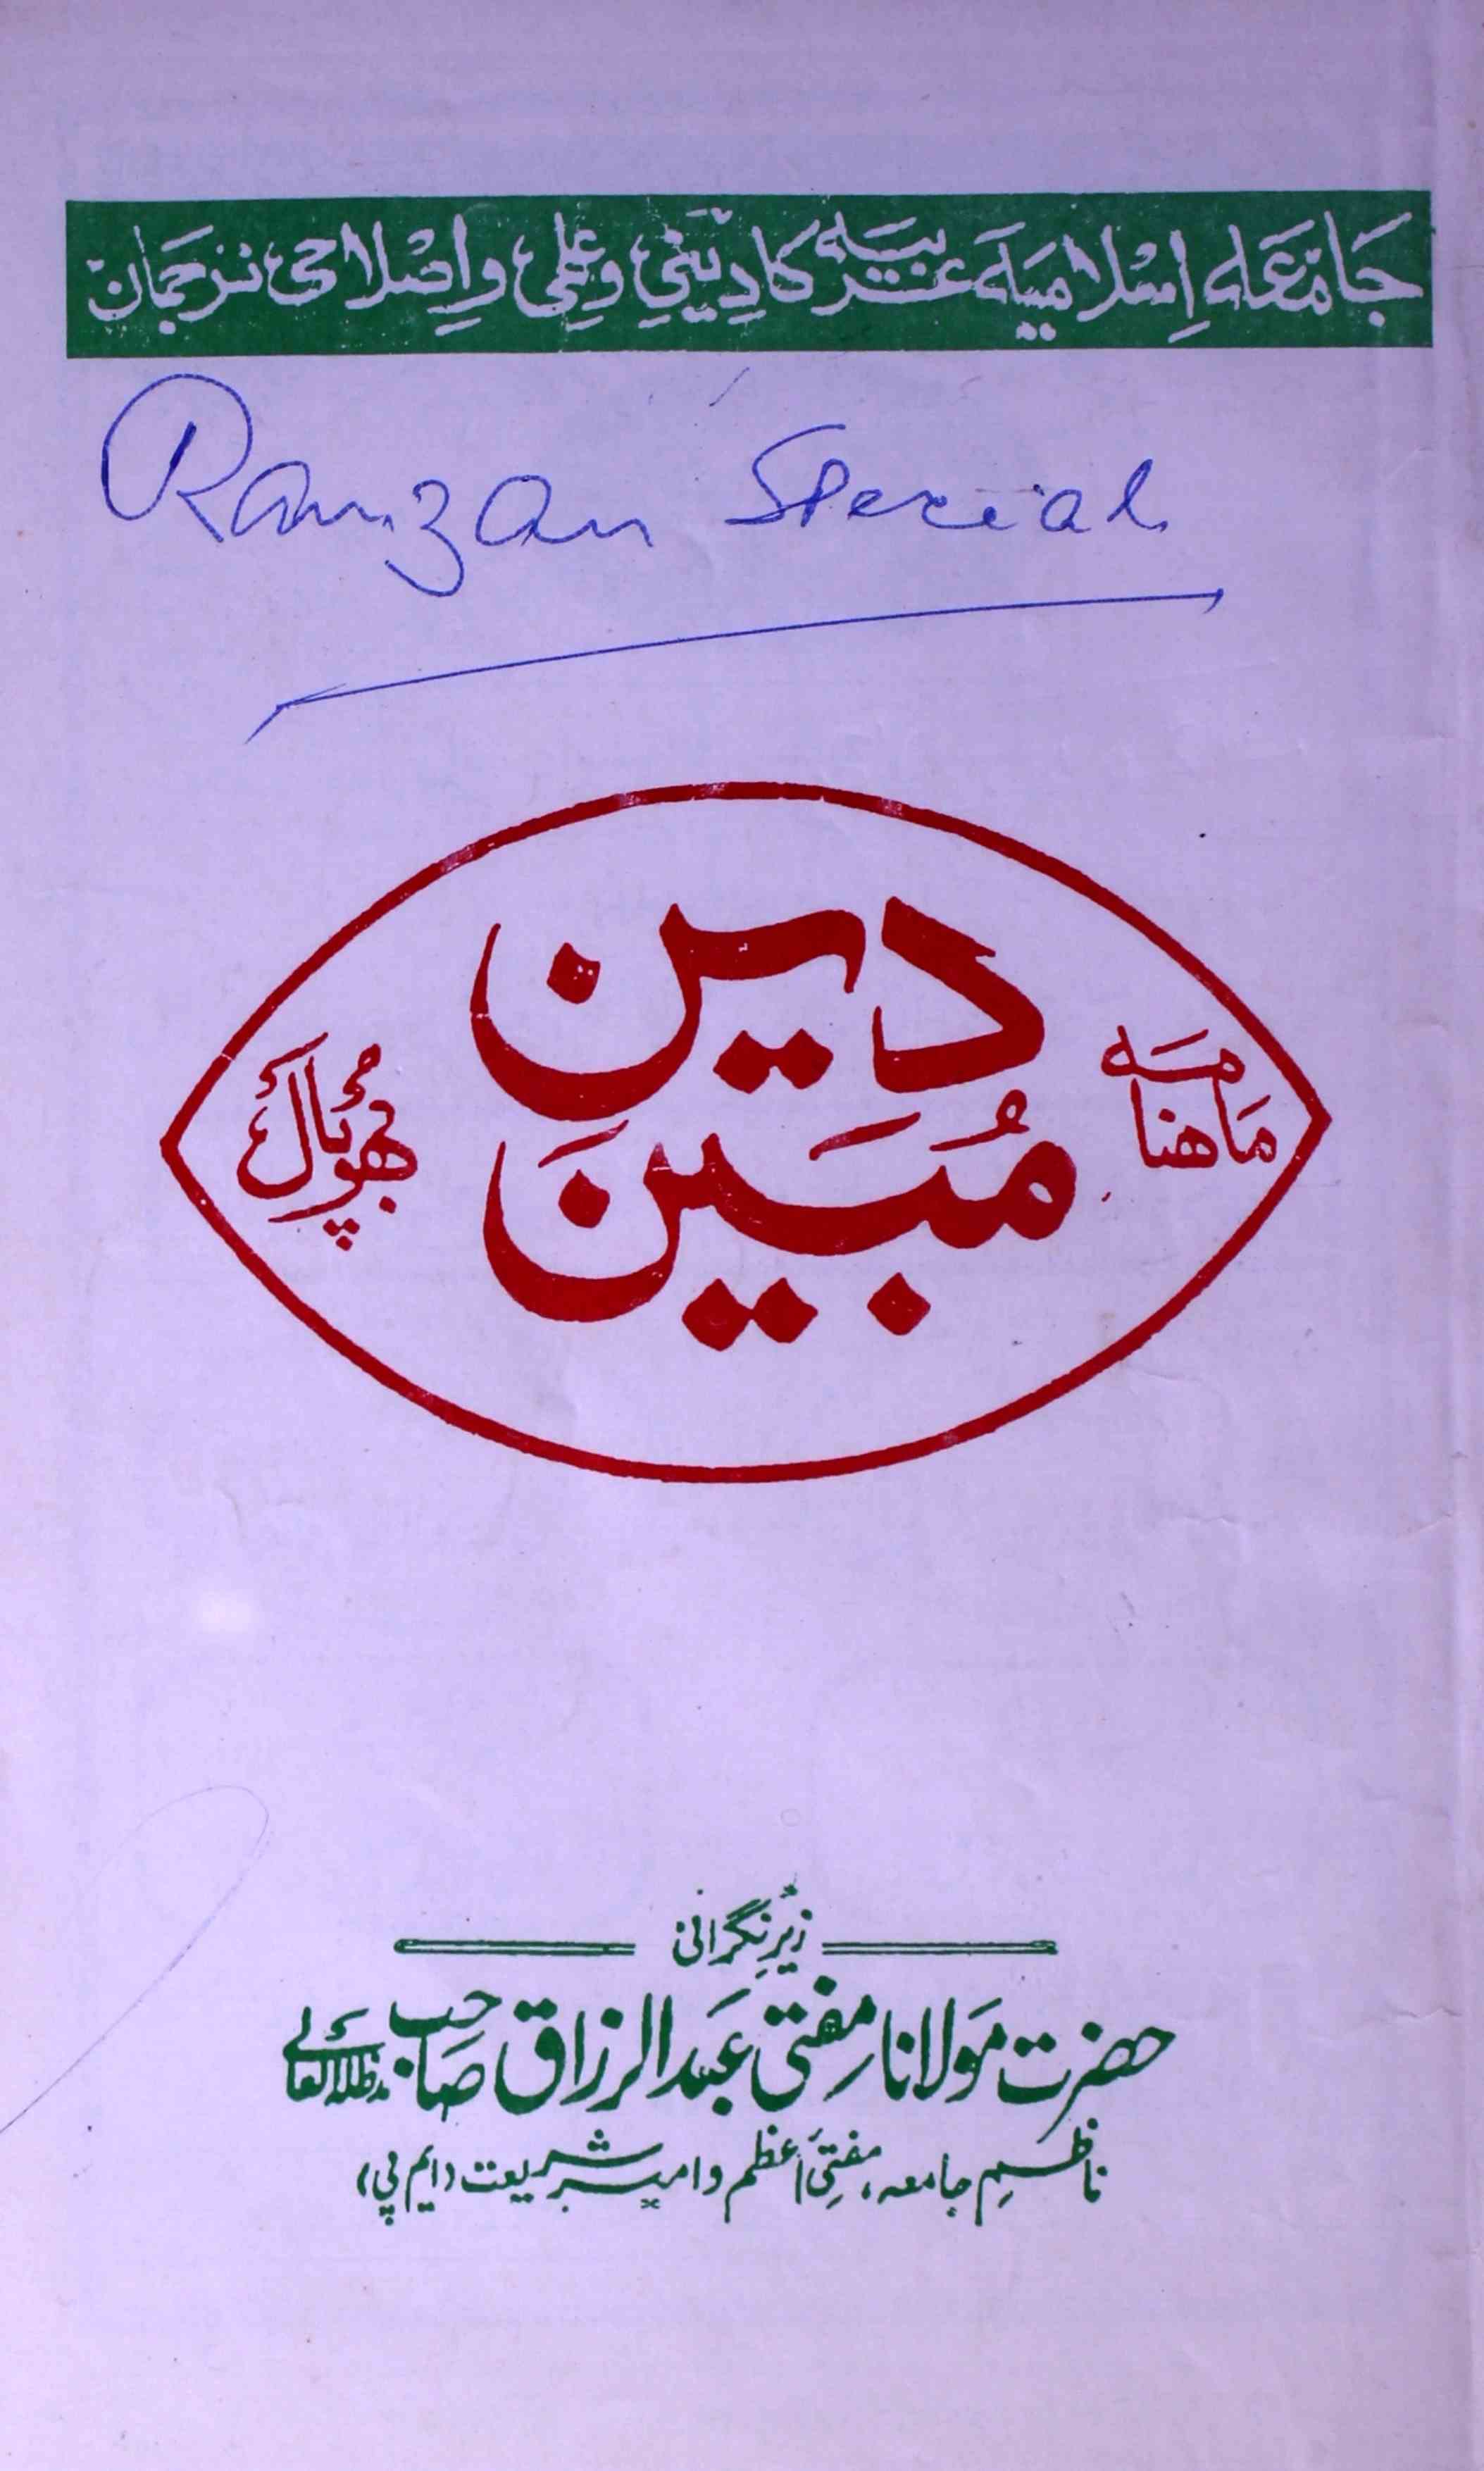 جامعہ اسلامیہ عربیہ کا دینی و علمی و اصلاحی ترجمان
Ramzan Special
ماهنامہ
دین
مُبین
بھوپال
زیرِ نگرانی
حضرت مولانا مفتی عبد الرزاق صاحب مدظلہ العالی
ناظمِ جامعہ، مفتیٔ اعظم و امیر شریعت (ایم پی)